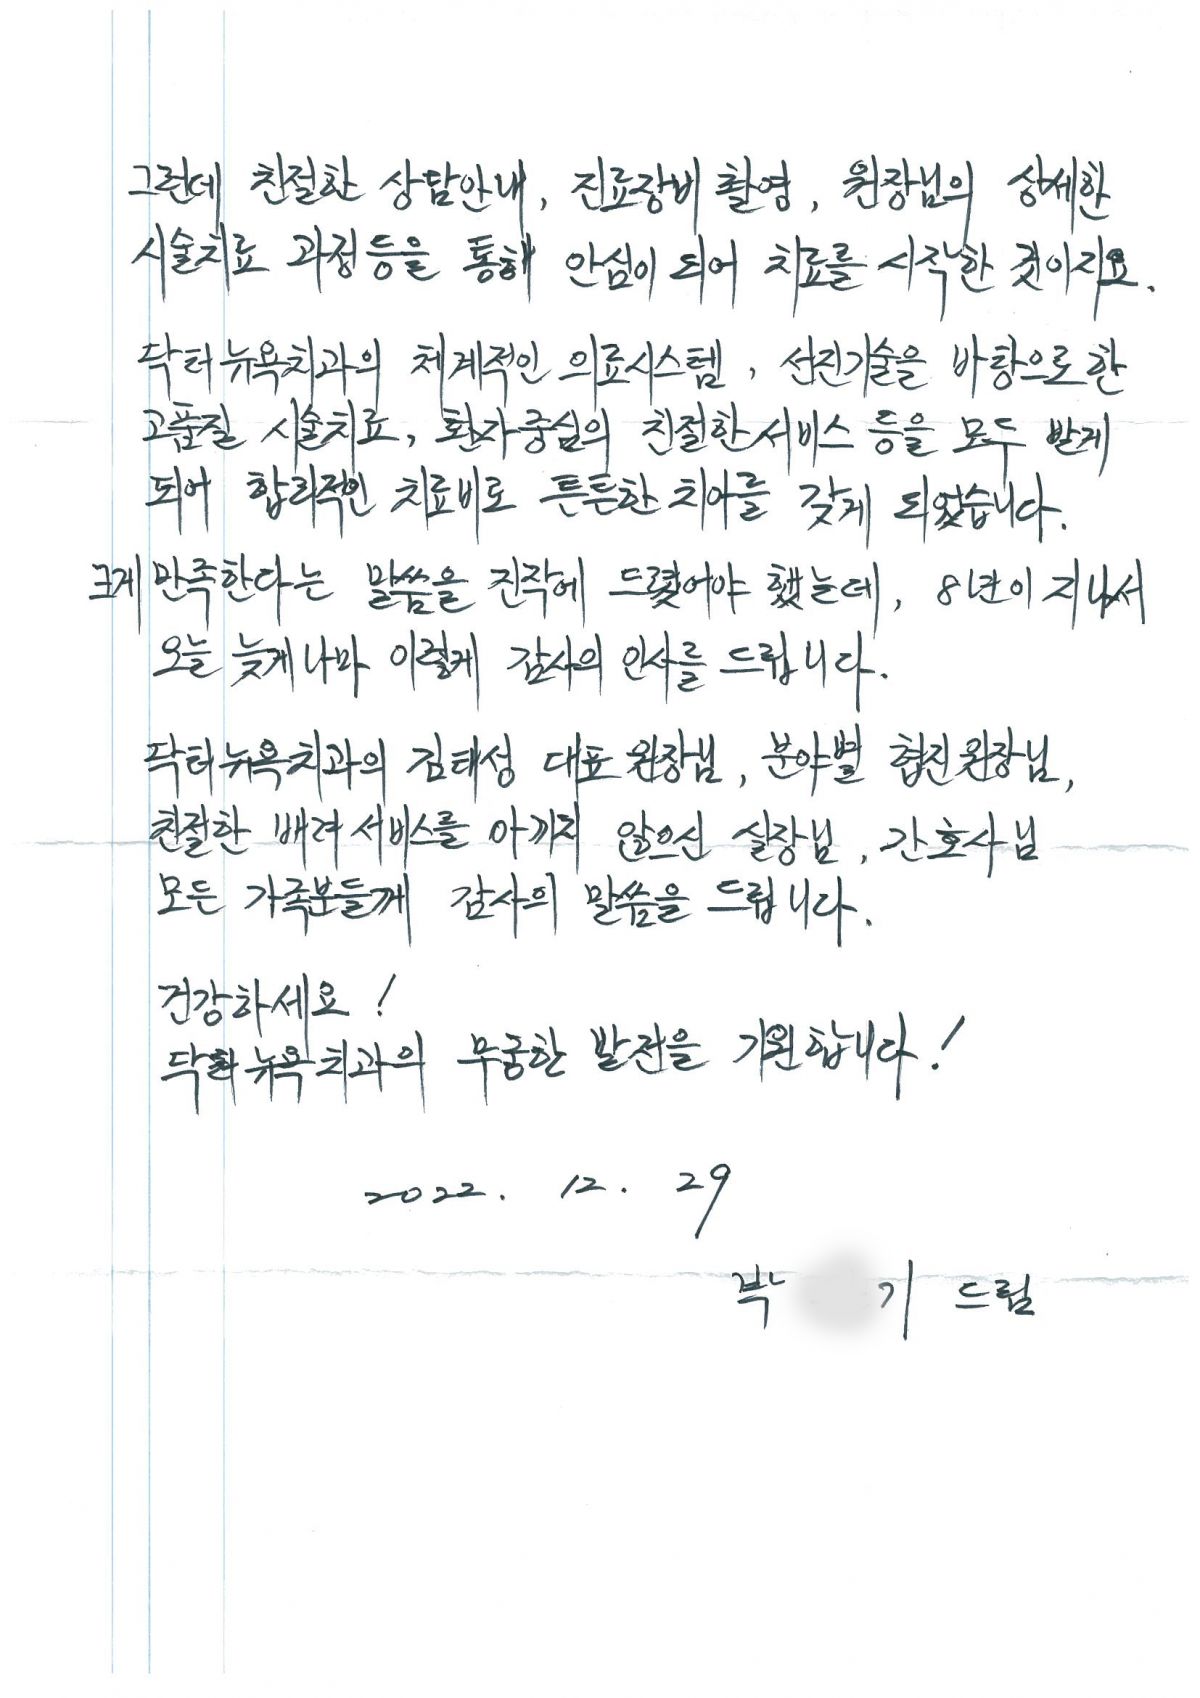 그런데 친절한 상담안내, 진료장비 촬영, 원장님의 상세한
시술치료 과정등을 통해 안심이 되어 치료를 시작한 것이지요.
닥터뉴욕치과의 체계적인 의료시스템, 선진기술을 바탕으로한
고품질 시술치료, 환자중심의 친절한서비스 등을 모두 받게
되어 합리적인 치료비로 튼튼한 치아를 갖게 되었습니다.
크게 만족한다는 말씀을 진작에 드렸어야 했는데, 8년이 지나서
오늘 늦게나마 이렇게 감사의 인사를 드립니다.
닥터뉴욕치과의 김태성 대표원장님, 분야별 협진원장님,
친절한 배려서비스를 아끼지 않으신 실장님, 간호사님
모든 가족분들께 감사의 말씀을 드립니다.
건강하세요!
닥터뉴욕치과의 무궁한 발전을 기원합니다!
2022. 12. 29
박 기 드림